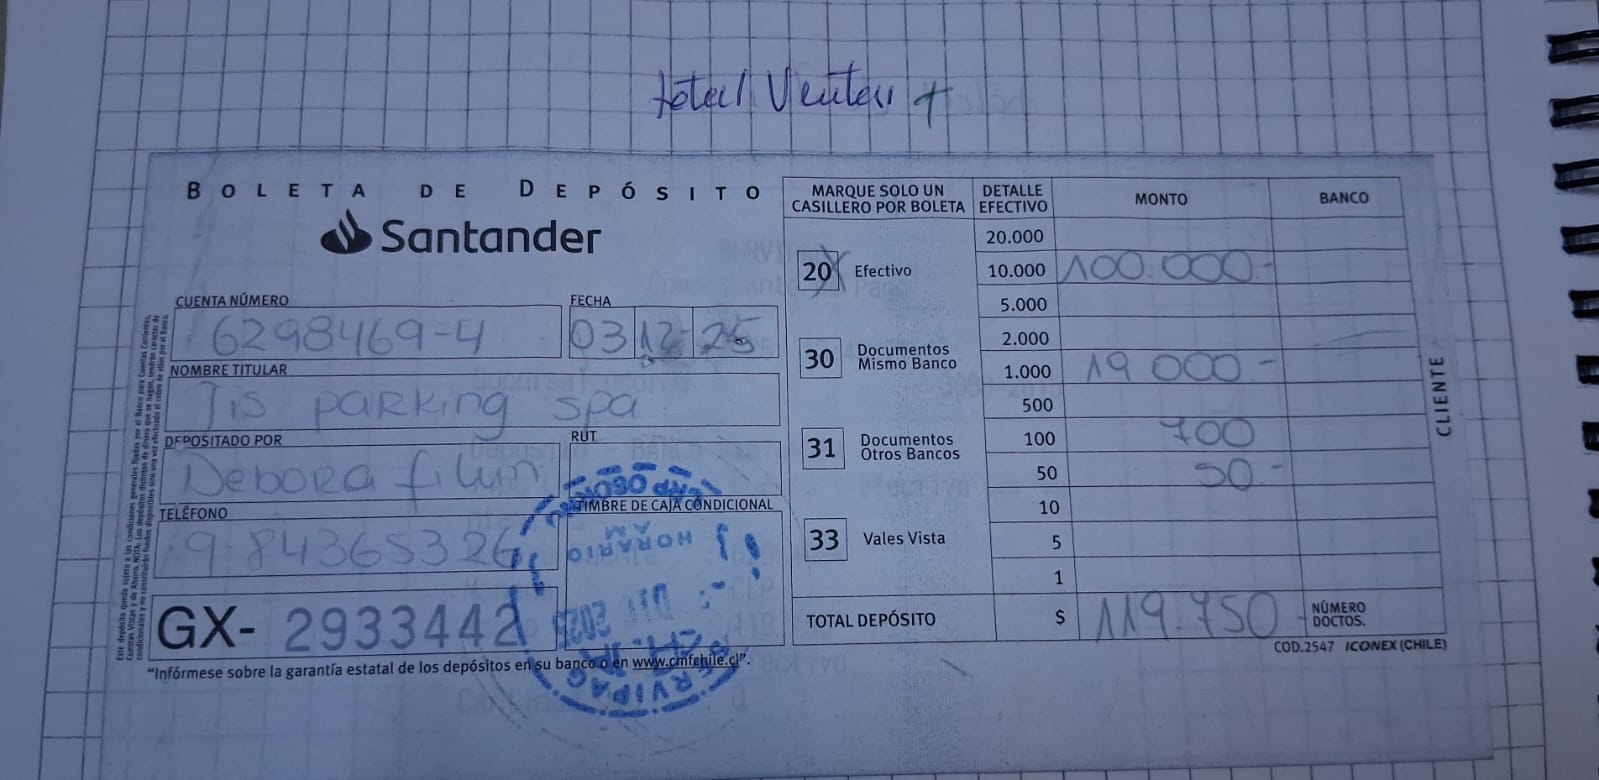 total Ventas +
BOLETA DE DEPÓSITO
Santander
CUENTA NÚMERO
6298469-4
FECHA
03 12 25
NOMBRE TITULAR
Jis parking spa
DEPOSITADO POR
Debora filun
RUT
TELÉFONO
9.84365326
TIMBRE DE CAJA CONDICIONAL
HORARIO
GX- 2933442
"Infórmese sobre la garantía estatal de los depósitos en su banco o en www.cmfchile.cl".
MARQUE SOLO UN CASILLERO POR BOLETA
20 Efectivo
30 Documentos Mismo Banco
31 Documentos Otros Bancos
33 Vales Vista
DETALLE EFECTIVO MONTO BANCO
20.000
10.000 100.000.-
5.000
2.000
1.000 19 000-
500
100 700
50 50-
10
5
1
TOTAL DEPÓSITO $ 119.750- NÚMERO DOCTOS.
COD.2547 ICONEX (CHILE)
CLIENTE
SERVIPAG